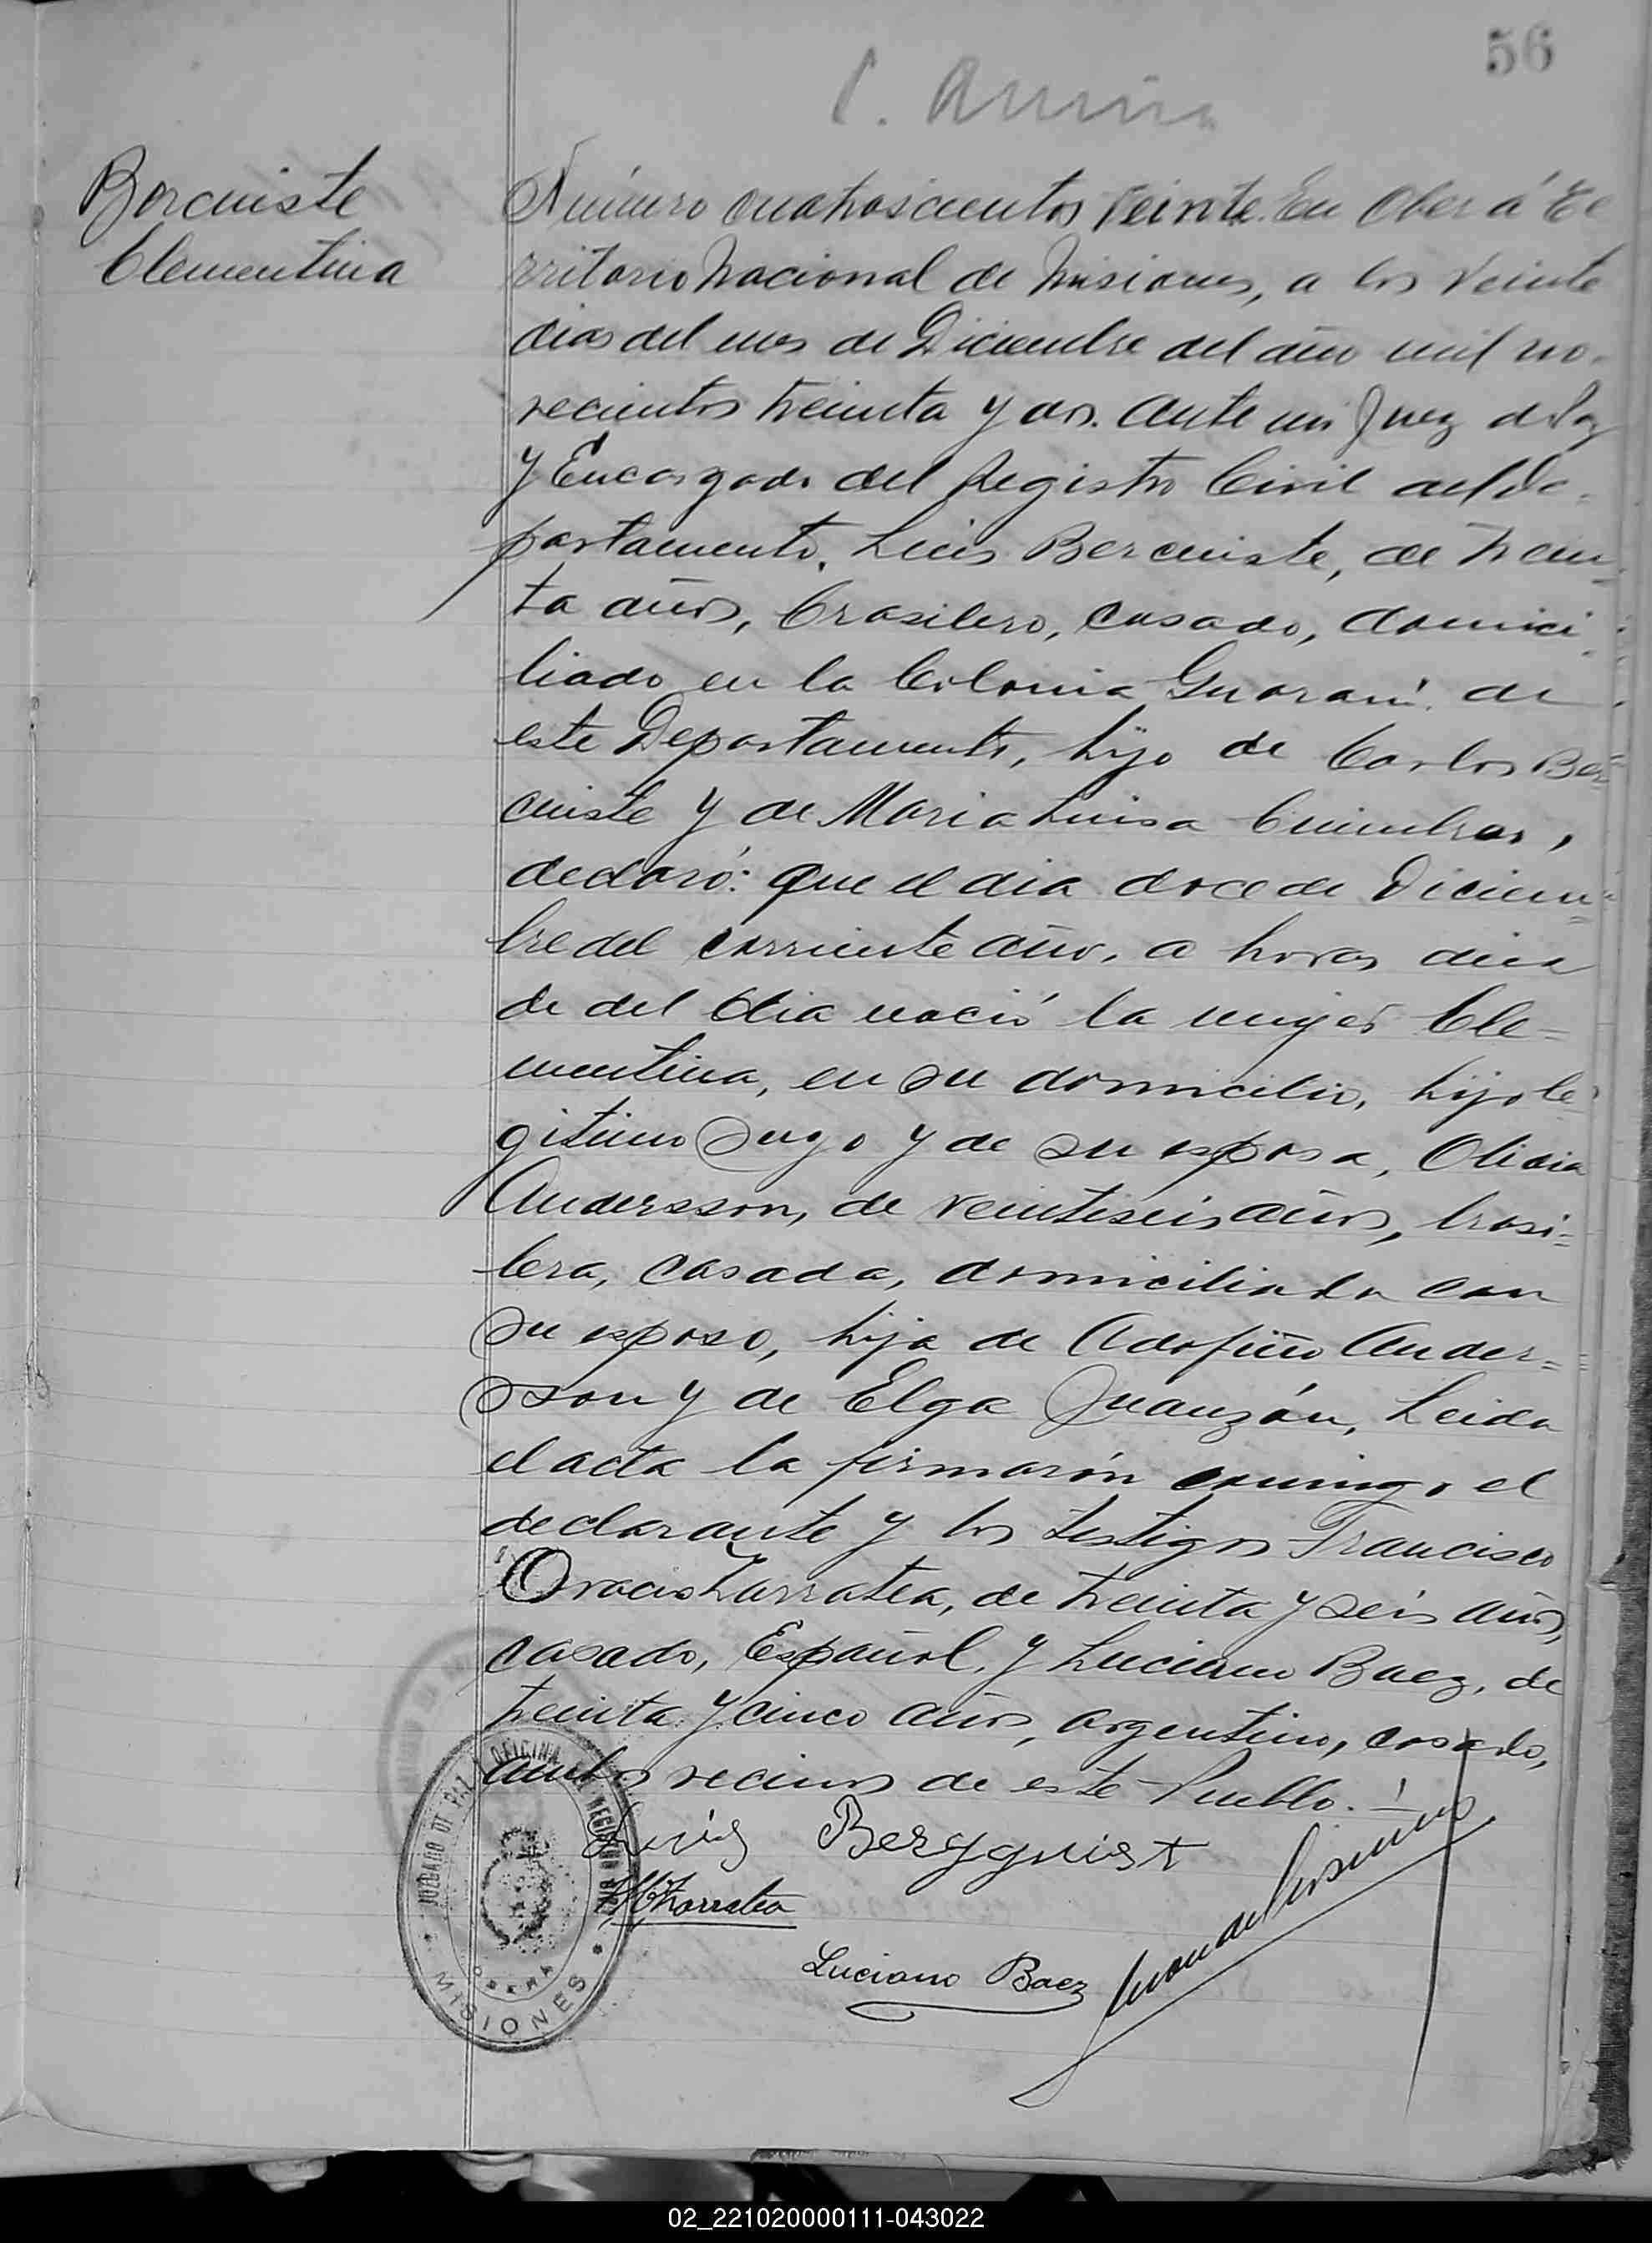 56
Borcuiste
Clementina
Número cuatroscientos veinte. En Oberá Te
rritorio Nacional de Misiones, a los veinte
dias del mes de Diciembre del año mil no-
vecientos treinta y dos. Ante mi Juez de Paz
y Encargado del Registro Civil del De-
partamento, Luis Bercuiste, de trein-
ta años, brasilero, casado, domici-
liado en la Colonia Guaraní de
este Departamento, hijo de Carlos Ber
cuiste y de Maria Luisa
declaró: que el dia doce de Diciem-
bre del corriente año, a horas diez
de del dia nació la mujer Cle-
mentina, en su domicilio, hijo le-
gitimo suyo y de su esposa, Olidia
Andersson, de veintiseis años, brasi-
lera, casada, domiciliada con
su esposo, hija de Ander-
sson y de Elga Juanzón, Leida
el acta la firmarón conmigo el
declarante y los testigos Francisco
Oracio Zarratea, de treinta y seis años,
casado, Español, y Luciano Baez, de
treinta y cinco años, argentino, casado,
ambos vecinos de este Pueblo.
Luis Bergquist
Zarratea
Luciano Baez
JUZGADO DE PAZ Y OFICINA DE REGISTRO CIVIL
OBERA
MISIONES
02_221020000111-043022